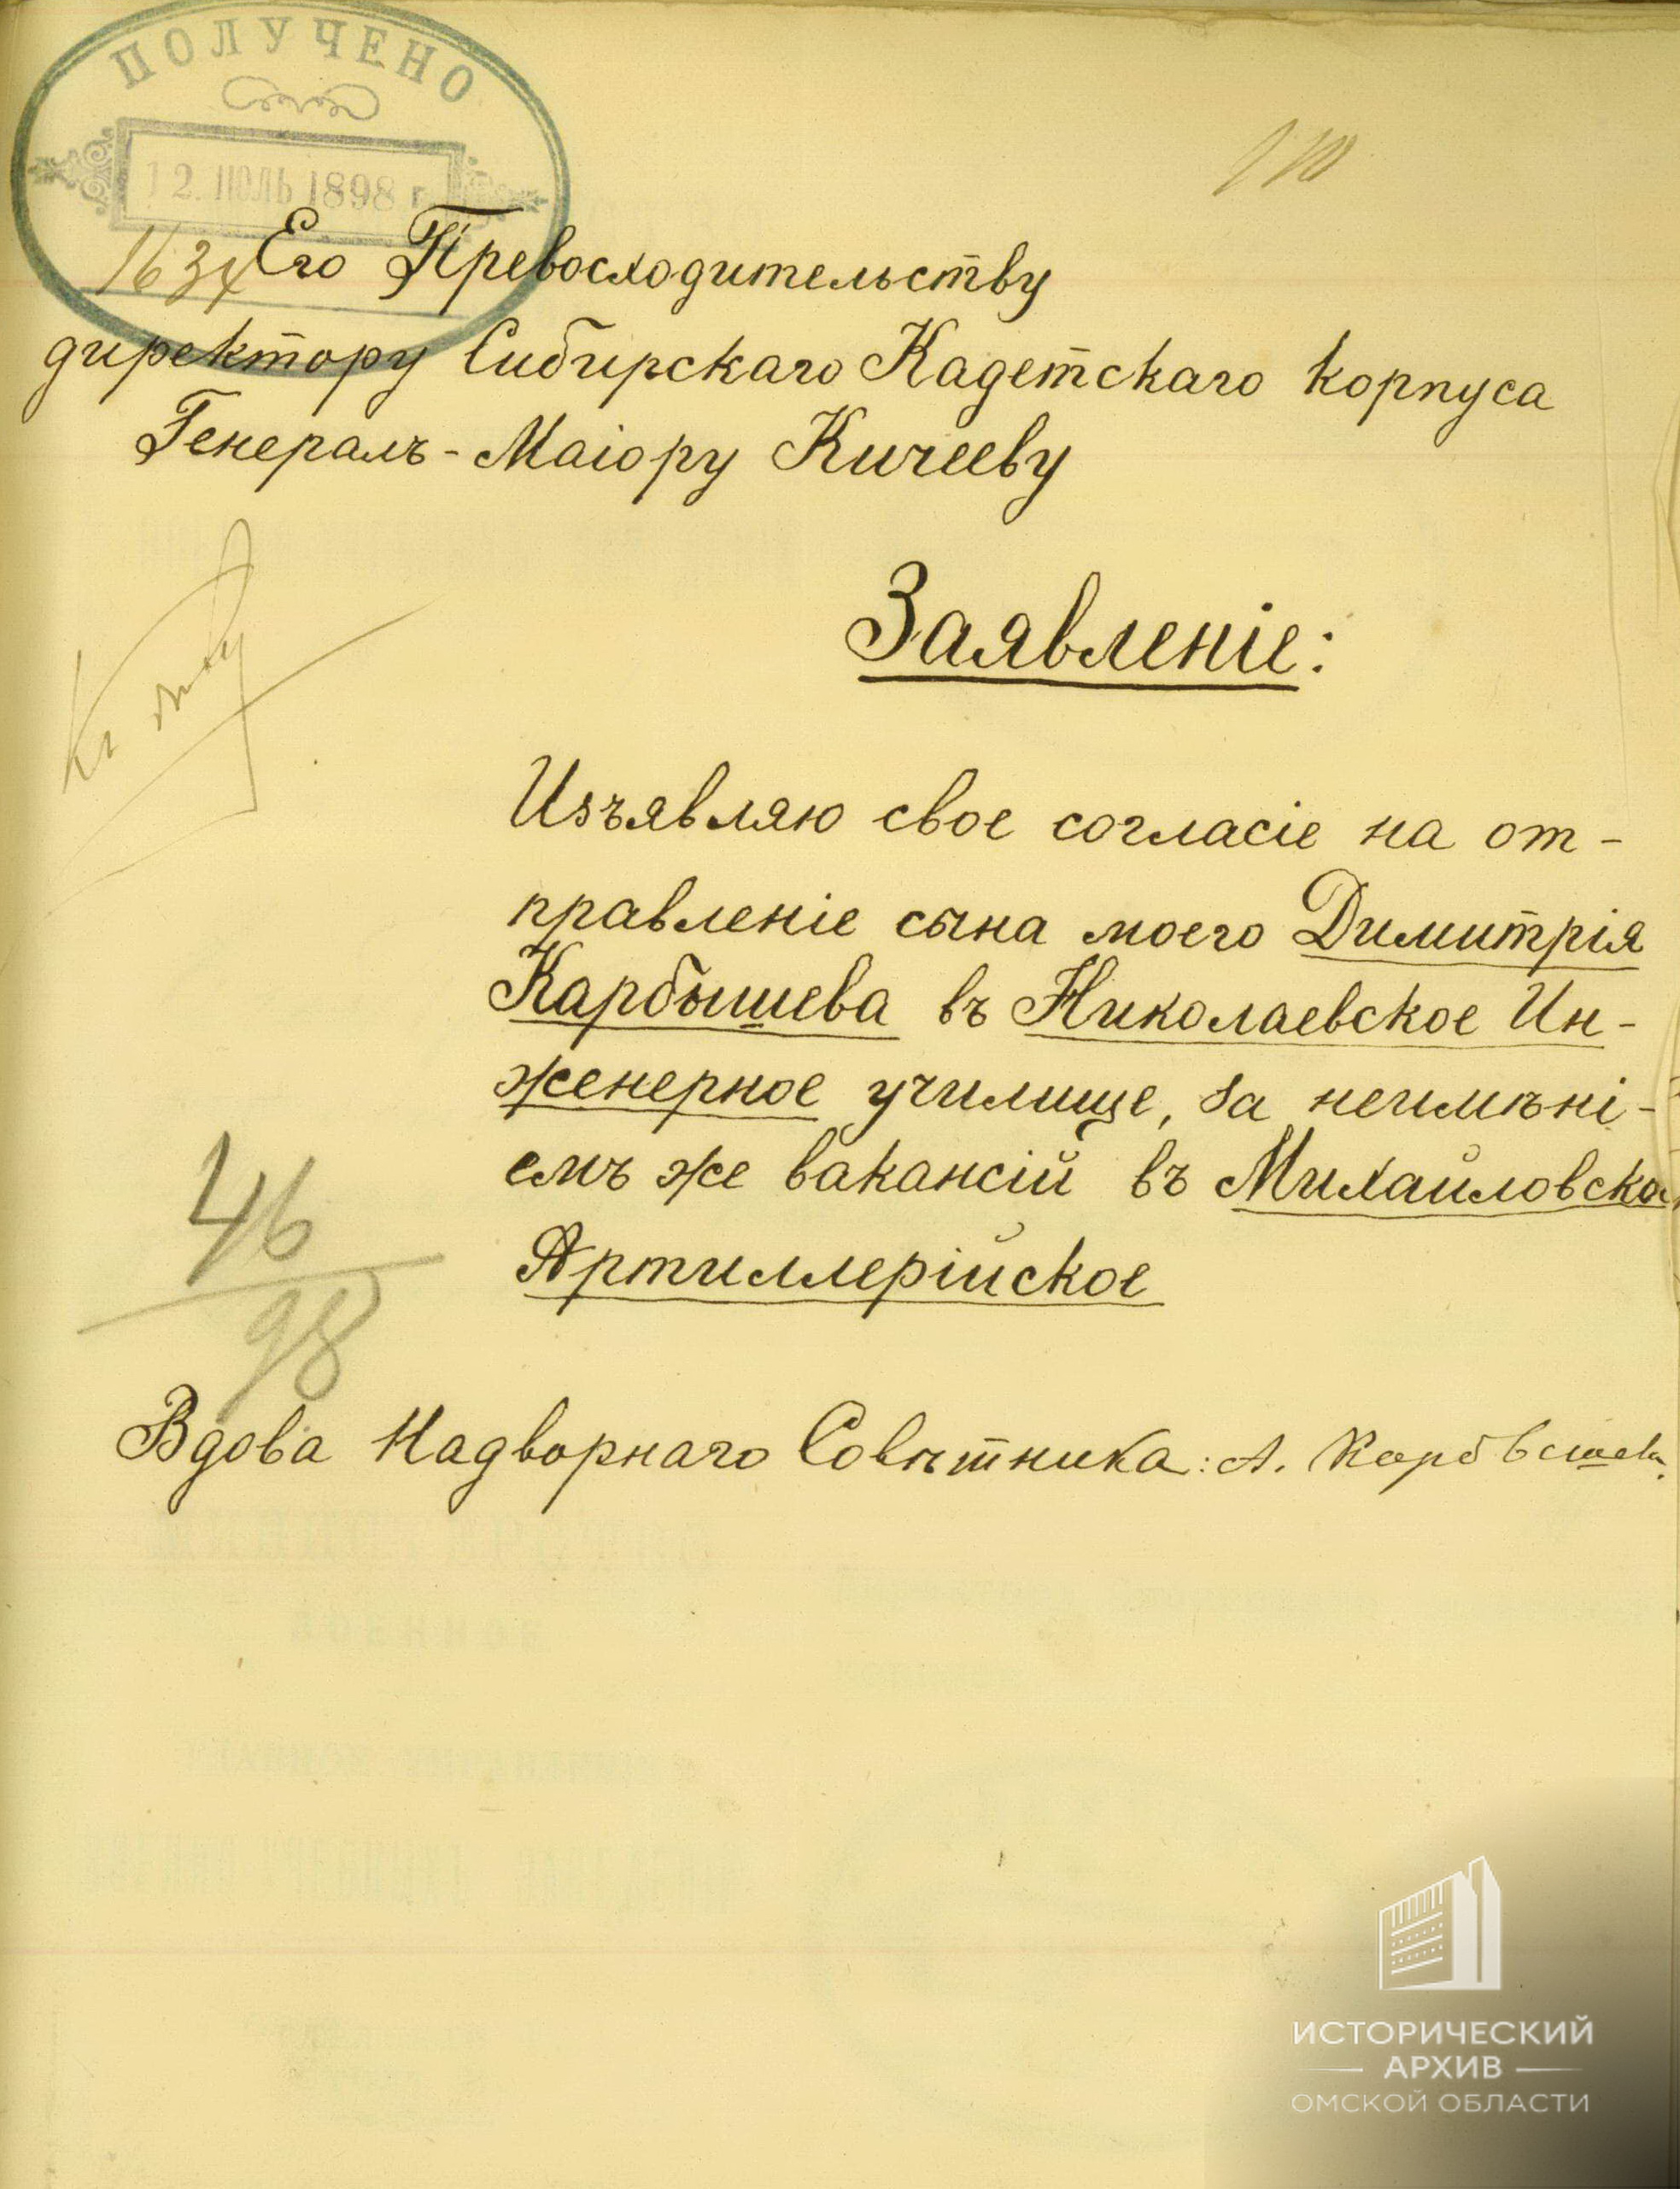 ПОЛУЧЕНО
12. ИЮЛЬ 1898 г.
1634
Его Превосходительству
директору Сибирскаго Кадетскаго корпуса
Генералъ-Маіору Кичееву
Заявленіе:
Изъявляю свое согласіе на от-
правленіе сына моего Димитрія
Карбышева въ Николаевское Ин-
женерное училище, за неимѣні-
емъ же вакансій въ Михайловское
Артиллерійское
46
98
Вдова Надворнаго Совѣтника: А. Карбышева.
ИСТОРИЧЕСКИЙ
АРХИВ
ОМСКОЙ ОБЛАСТИ